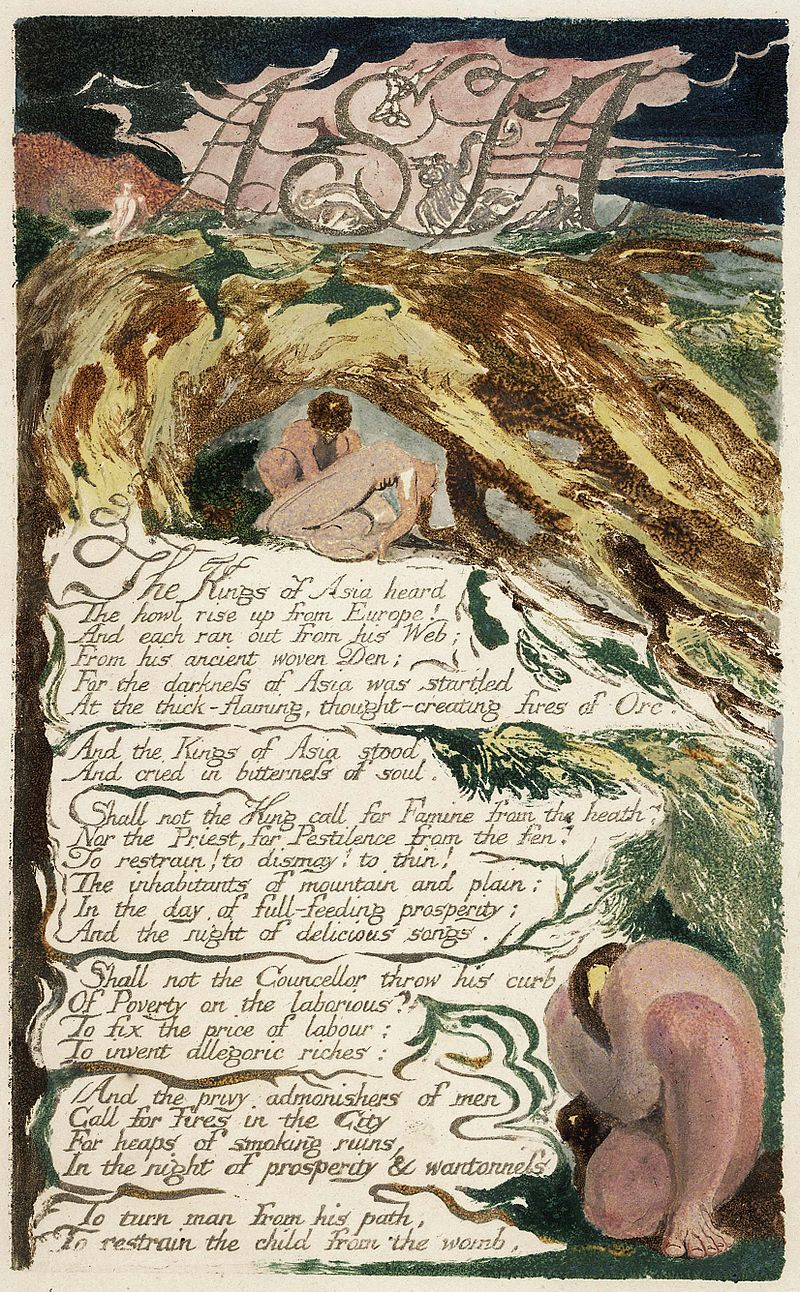 ASIA
The Kings of Asia heard
The howl rise up from Europe!
And each ran out from his Web;
From his ancient woven Den;
For the darkness of Asia was startled
At the thick-flaming, thought-creating fires of Orc.
And the Kings of Asia stood
And cried in bitterness of soul.
Shall not the King call for Famine from the heath?
Nor the Priest, for Pestilence from the fen?
To restrain! to dismay! to thin!
The inhabitants of mountain and plain;
In the day, of full-feeding prosperity;
And the night of delicious songs.
Shall not the Councellor throw his curb
Of Poverty on the laborious?
To fix the price of labour;
To invent allegoric riches:
And the privy admonishers of men
Call for Fires in the City
For heaps of smoking ruins,
In the night of prosperity & wantonness
To turn man from his path,
To restrain the child from the womb,